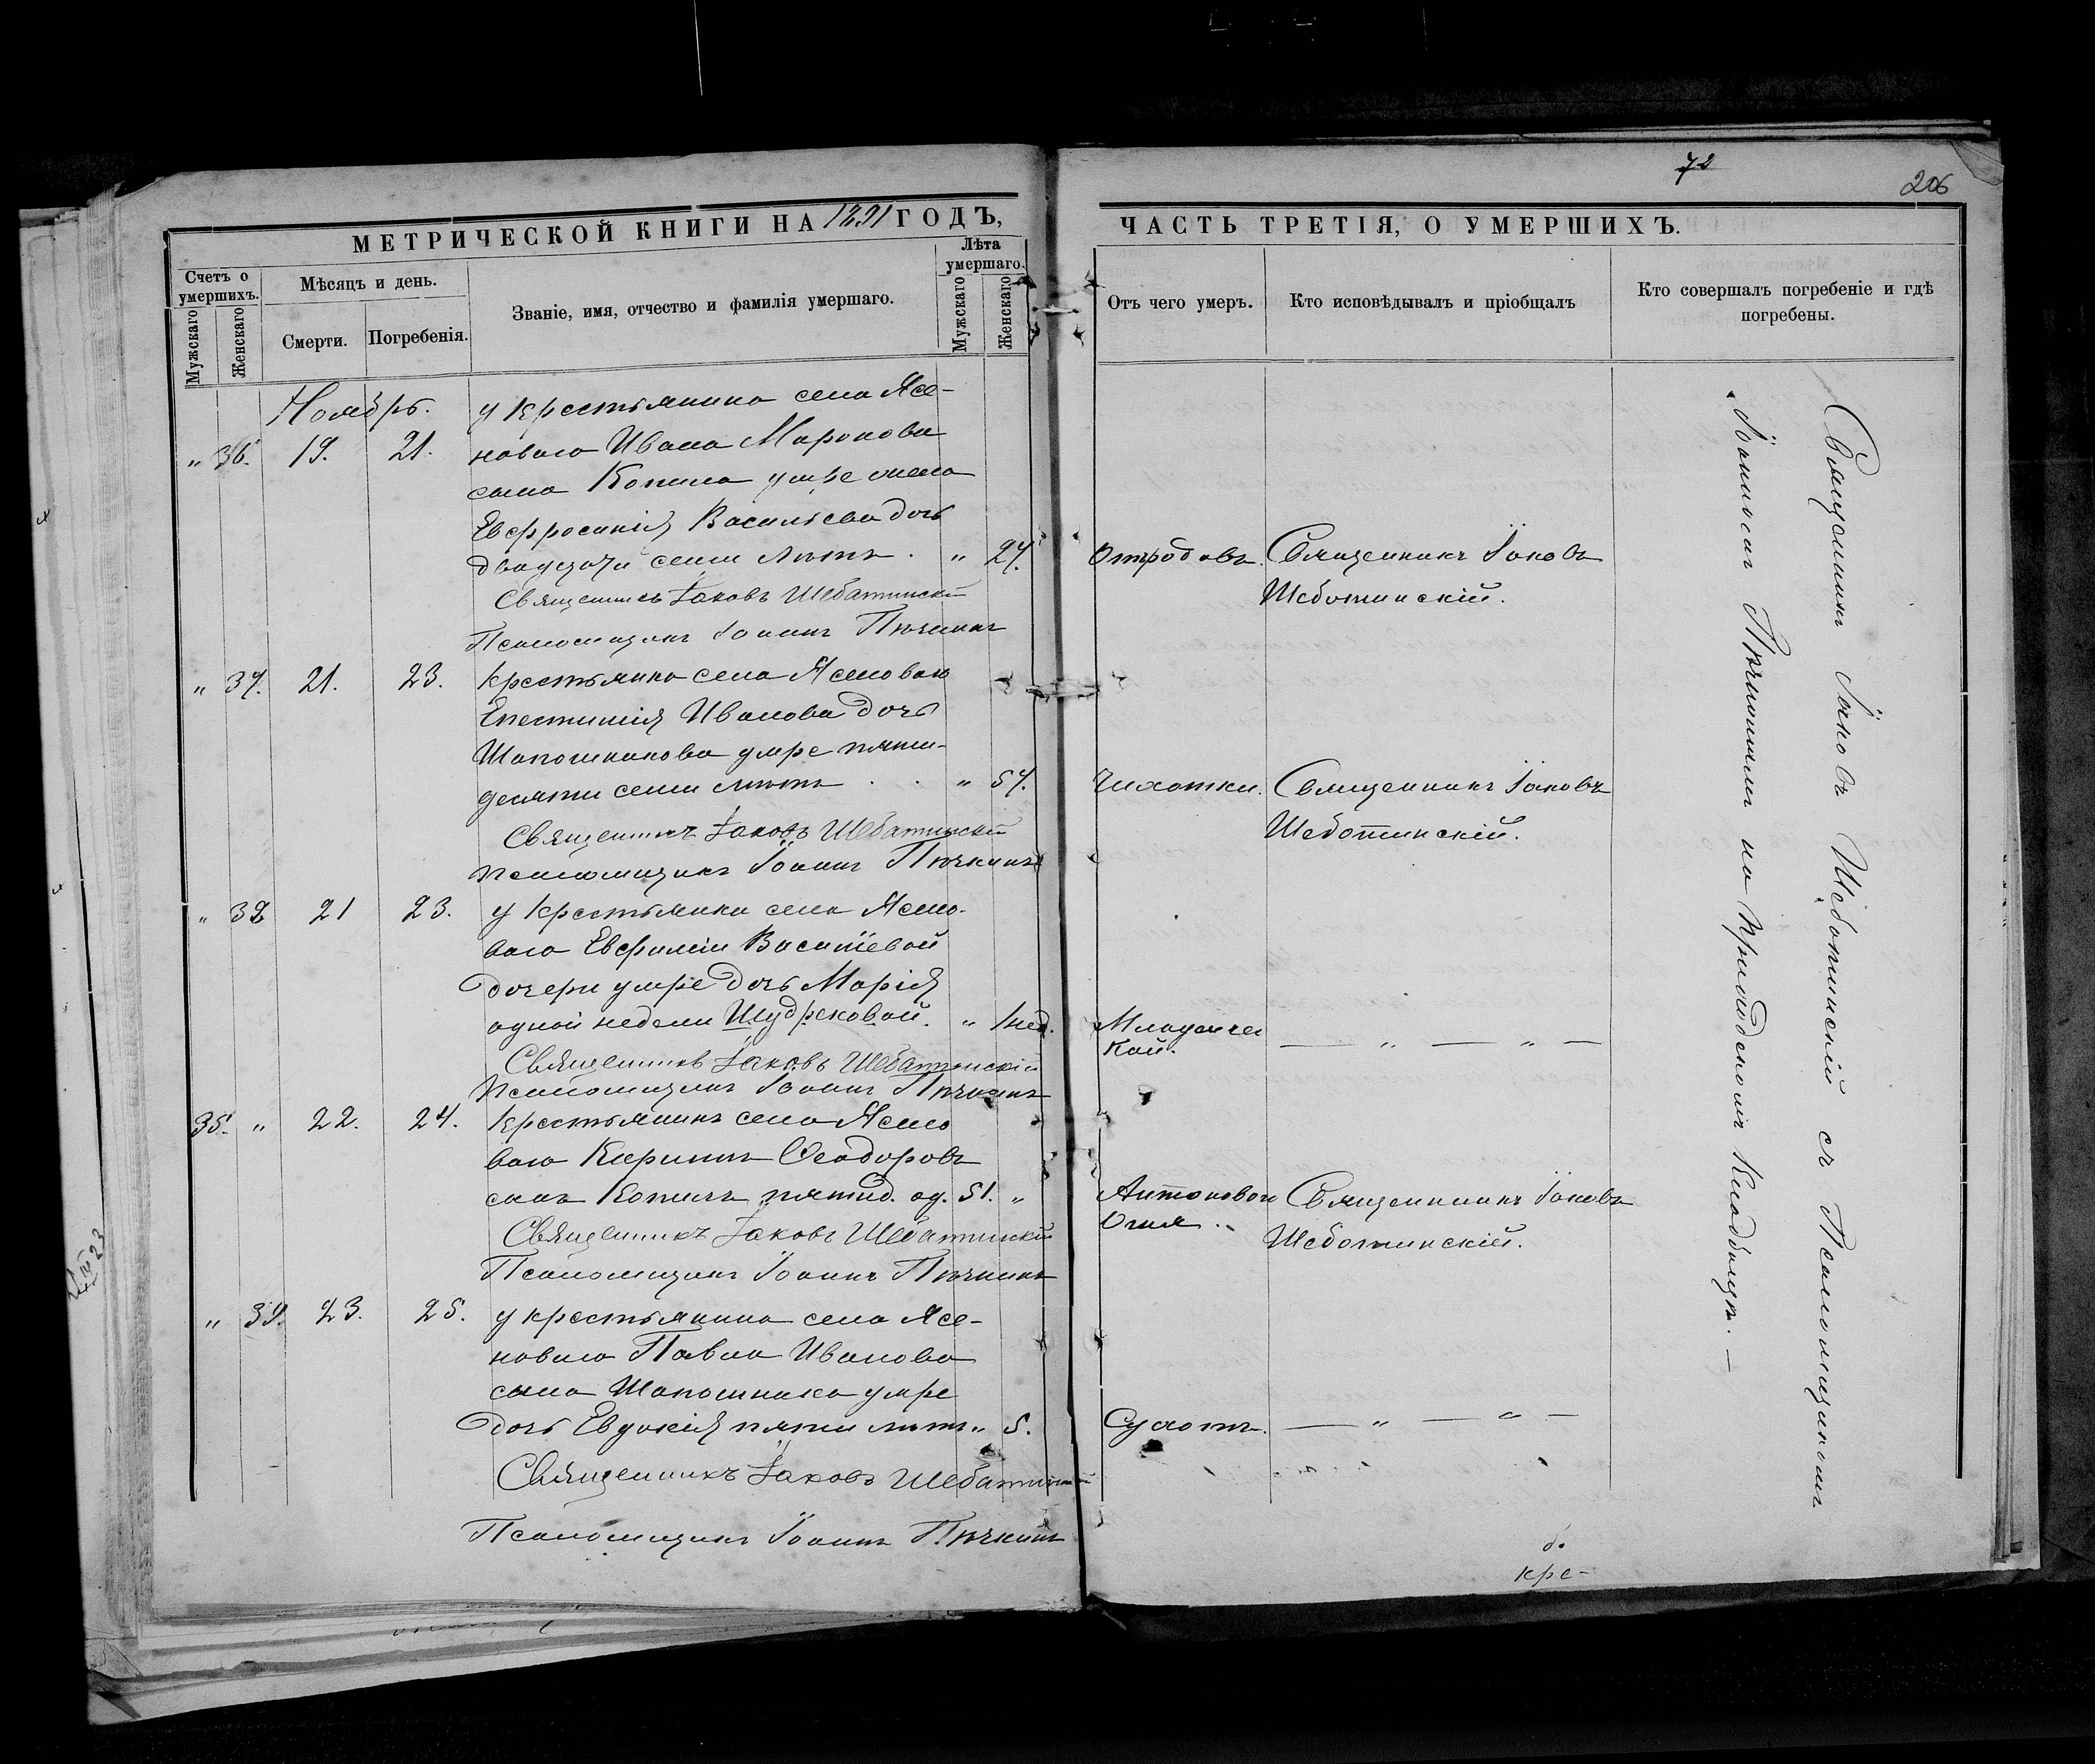 МЕТРИЧЕСКОЙ КНИГИ НА 1891 ГОДЪ,
Счетъ о умершихъ.
Мужскаго
Женскаго
Мѣсяцъ и день.
Смерти.
Погребенія.
Званіе, имя, отчество и фамилія умершаго.
Лѣта умершаго.
Мужскаго
Женскаго
Ноябрь.
у крестьянина села Ясе-
" 36. 19. 21. новаго Ивана Миронова
сына Копила умре жена
Евфросинія Васильева дочь
двадцати семи лѣтъ . " 27.
Священникъ Іаковъ Шеботинскій
Псаломщикъ Іоаннъ Пѣчкинъ
" 37. 21. 23. крестьянка села Ясеноваго
Епестимія Иванова дочь
Шапошникова умре пяти-
десяти семи лѣтъ . . " 57.
Священникъ Іаковъ Шебатинскій
Псаломщикъ Іоаннъ Пѣчкинъ
" 38 21 23. у крестьянки села Ясено-
ваго Евфиміи Васильевой
дочери умре дочь Марія
одной недели Щудрековой. " 1 нед.
Священникъ Іаковъ Шебатинскій
Псаломщикъ Іоаннъ Пѣчкинъ
35. " 22. 24. крестьянинъ села Ясено
ваго Кириллъ Ѳеодоровъ
сынъ Копичъ пятид. од. 51. "
Священникъ Іаковъ Шебатинскій
Псаломщикъ Іоаннъ Пѣчкинъ
" 39. 23. 25. у крестьянина села Ясе-
новаго Павла Иванова
сына Шапошника умре
дочь Евдокія пяти лѣтъ " 5.
Священникъ Іаковъ Шебатинскій
Псаломщикъ Іоаннъ Пѣчкинъ
72
206
ЧАСТЬ ТРЕТІЯ, О УМЕРШИХЪ.
Отъ чего умеръ.
Кто исповѣдывалъ и пріобщалъ
Кто совершалъ погребеніе и гдѣ погребены.
Отъ родовъ. Священникъ Іаковъ
Шеботинскій.
Чихотки. Священникъ Іаковъ
Шеботинскій.
Младенчес
кой. — " — " —
Антонового Священникъ Іаковъ
Огня .. Шеботинскій.
Сухотъ. — " — " —
Священникъ Іаковъ Шеботинскій съ Псаломщикомъ
Іоанномъ Пѣчкинымъ на приходскомъ Кладбищѣ. —
кре-